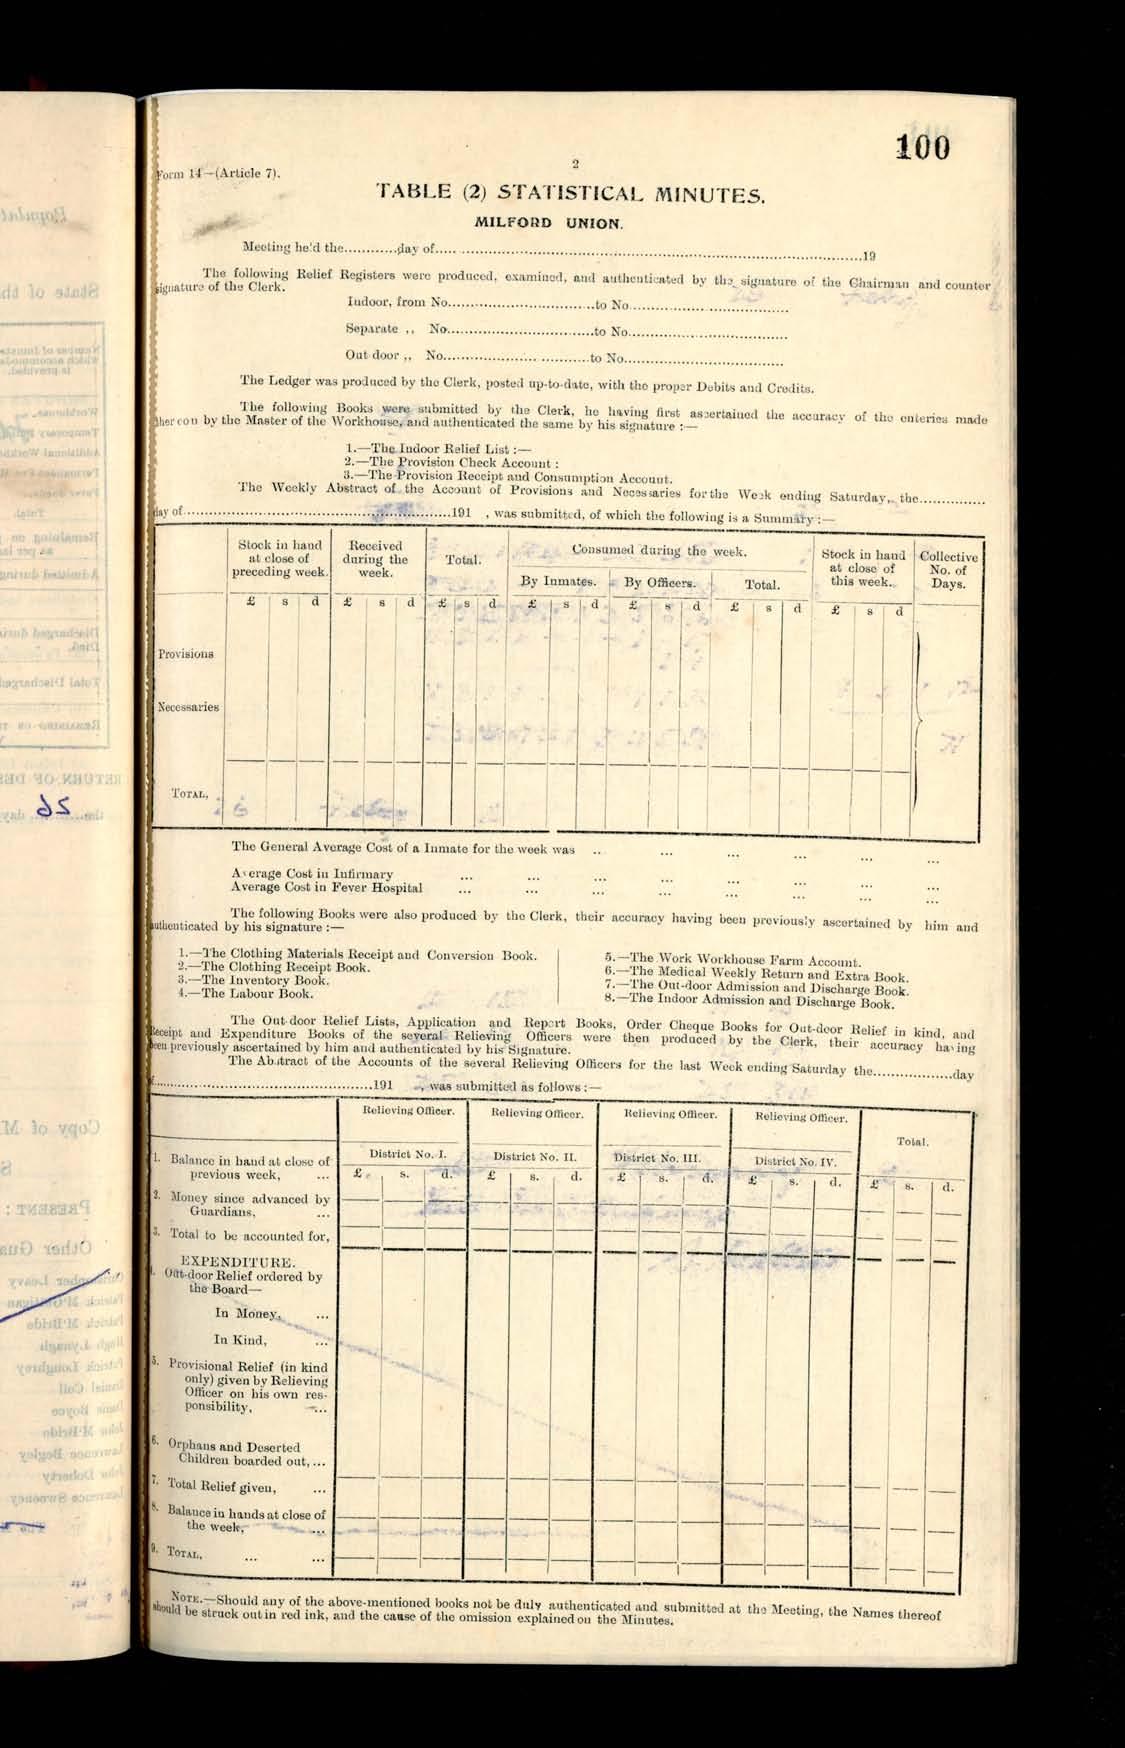 100
2
Form 14—(Article 7).
TABLE (2) STATISTICAL MINUTES.
MILFORD UNION.
Meeting he'd the............day of..........................................................19
The following Relief Registers were produced, examined, and authenticated by the signature of the Chairman and counter
signature of the Clerk.
Indoor, from No..............................to No..............................
Separate ,, No..............................to No..............................
Out door ,, No..............................to No..............................
The Ledger was produced by the Clerk, posted up-to-date, with the proper Debits and Credits.
The following Books were submitted by the Clerk, he having first ascertained the accuracy of the enteries made
ther con by the Master of the Workhouse, and authenticated the same by his signature :—
1.—The Indoor Relief List :—
2.—The Provision Check Account :
3.—The Provision Receipt and Consumption Account.
The Weekly Abstract of the Account of Provisions and Necessaries for the Week ending Saturday, the...............
day of..............................191 , was submitted, of which the following is a Summary :—
Stock in hand at close of preceding week. Received during the week. Total. Consumed during the week. Stock in hand at close of this week. Collective No. of Days.
By Inmates. By Officers. Total.
£ s d £ s d £ s d £ s d £ s d £ s d £ s d
Provisions
Necessaries
TOTAL,
The General Average Cost of a Inmate for the week was .. ... ... ... ... ...
Average Cost in Infirmary ... ... ... ... ... ... ... ...
Average Cost in Fever Hospital ... ... ... ... ... ... ... ...
The following Books were also produced by the Clerk, their accuracy having been previously ascertained by him and
authenticated by his signature :—
1.—The Clothing Materials Receipt and Conversion Book.
2.—The Clothing Receipt Book.
3.—The Inventory Book.
4.—The Labour Book.
5.—The Work Workhouse Farm Account.
6.—The Medical Weekly Return and Extra Book.
7.—The Out-door Admission and Discharge Book.
8.—The Indoor Admission and Discharge Book.
The Out-door Relief Lists, Application and Report Books, Order Cheque Books for Out-door Relief in kind, and
Receipt and Expenditure Books of the several Relieving Officers were then produced by the Clerk, their accuracy having
been previously ascertained by him and authenticated by his Signature.
The Abstract of the Accounts of the several Relieving Officers for the last Week ending Saturday the.................day
..............................191 , was submitted as follows :—
Relieving Officer. Relieving Officer. Relieving Officer. Relieving Officer. Total.
District No. I. District No. II. District No. III. District No. IV.
£ s. d. £ s. d. £ s. d. £ s. d. £ s. d.
1. Balance in hand at close of
previous week, ...
2. Money since advanced by
Guardians, ...
3. Total to be accounted for,
EXPENDITURE.
Out-door Relief ordered by
the Board—
In Money, ...
In Kind, ...
5. Provisional Relief (in kind
only) given by Relieving
Officer on his own res-
ponsibility, ...
6. Orphans and Deserted
Children boarded out, ...
7. Total Relief given, ...
8. Balance in hands at close of
the week, ...
9. TOTAL, ... ...
NOTE.—Should any of the above-mentioned books not be duly authenticated and submitted at the Meeting, the Names thereof
should be struck out in red ink, and the cause of the omission explained on the Minutes.